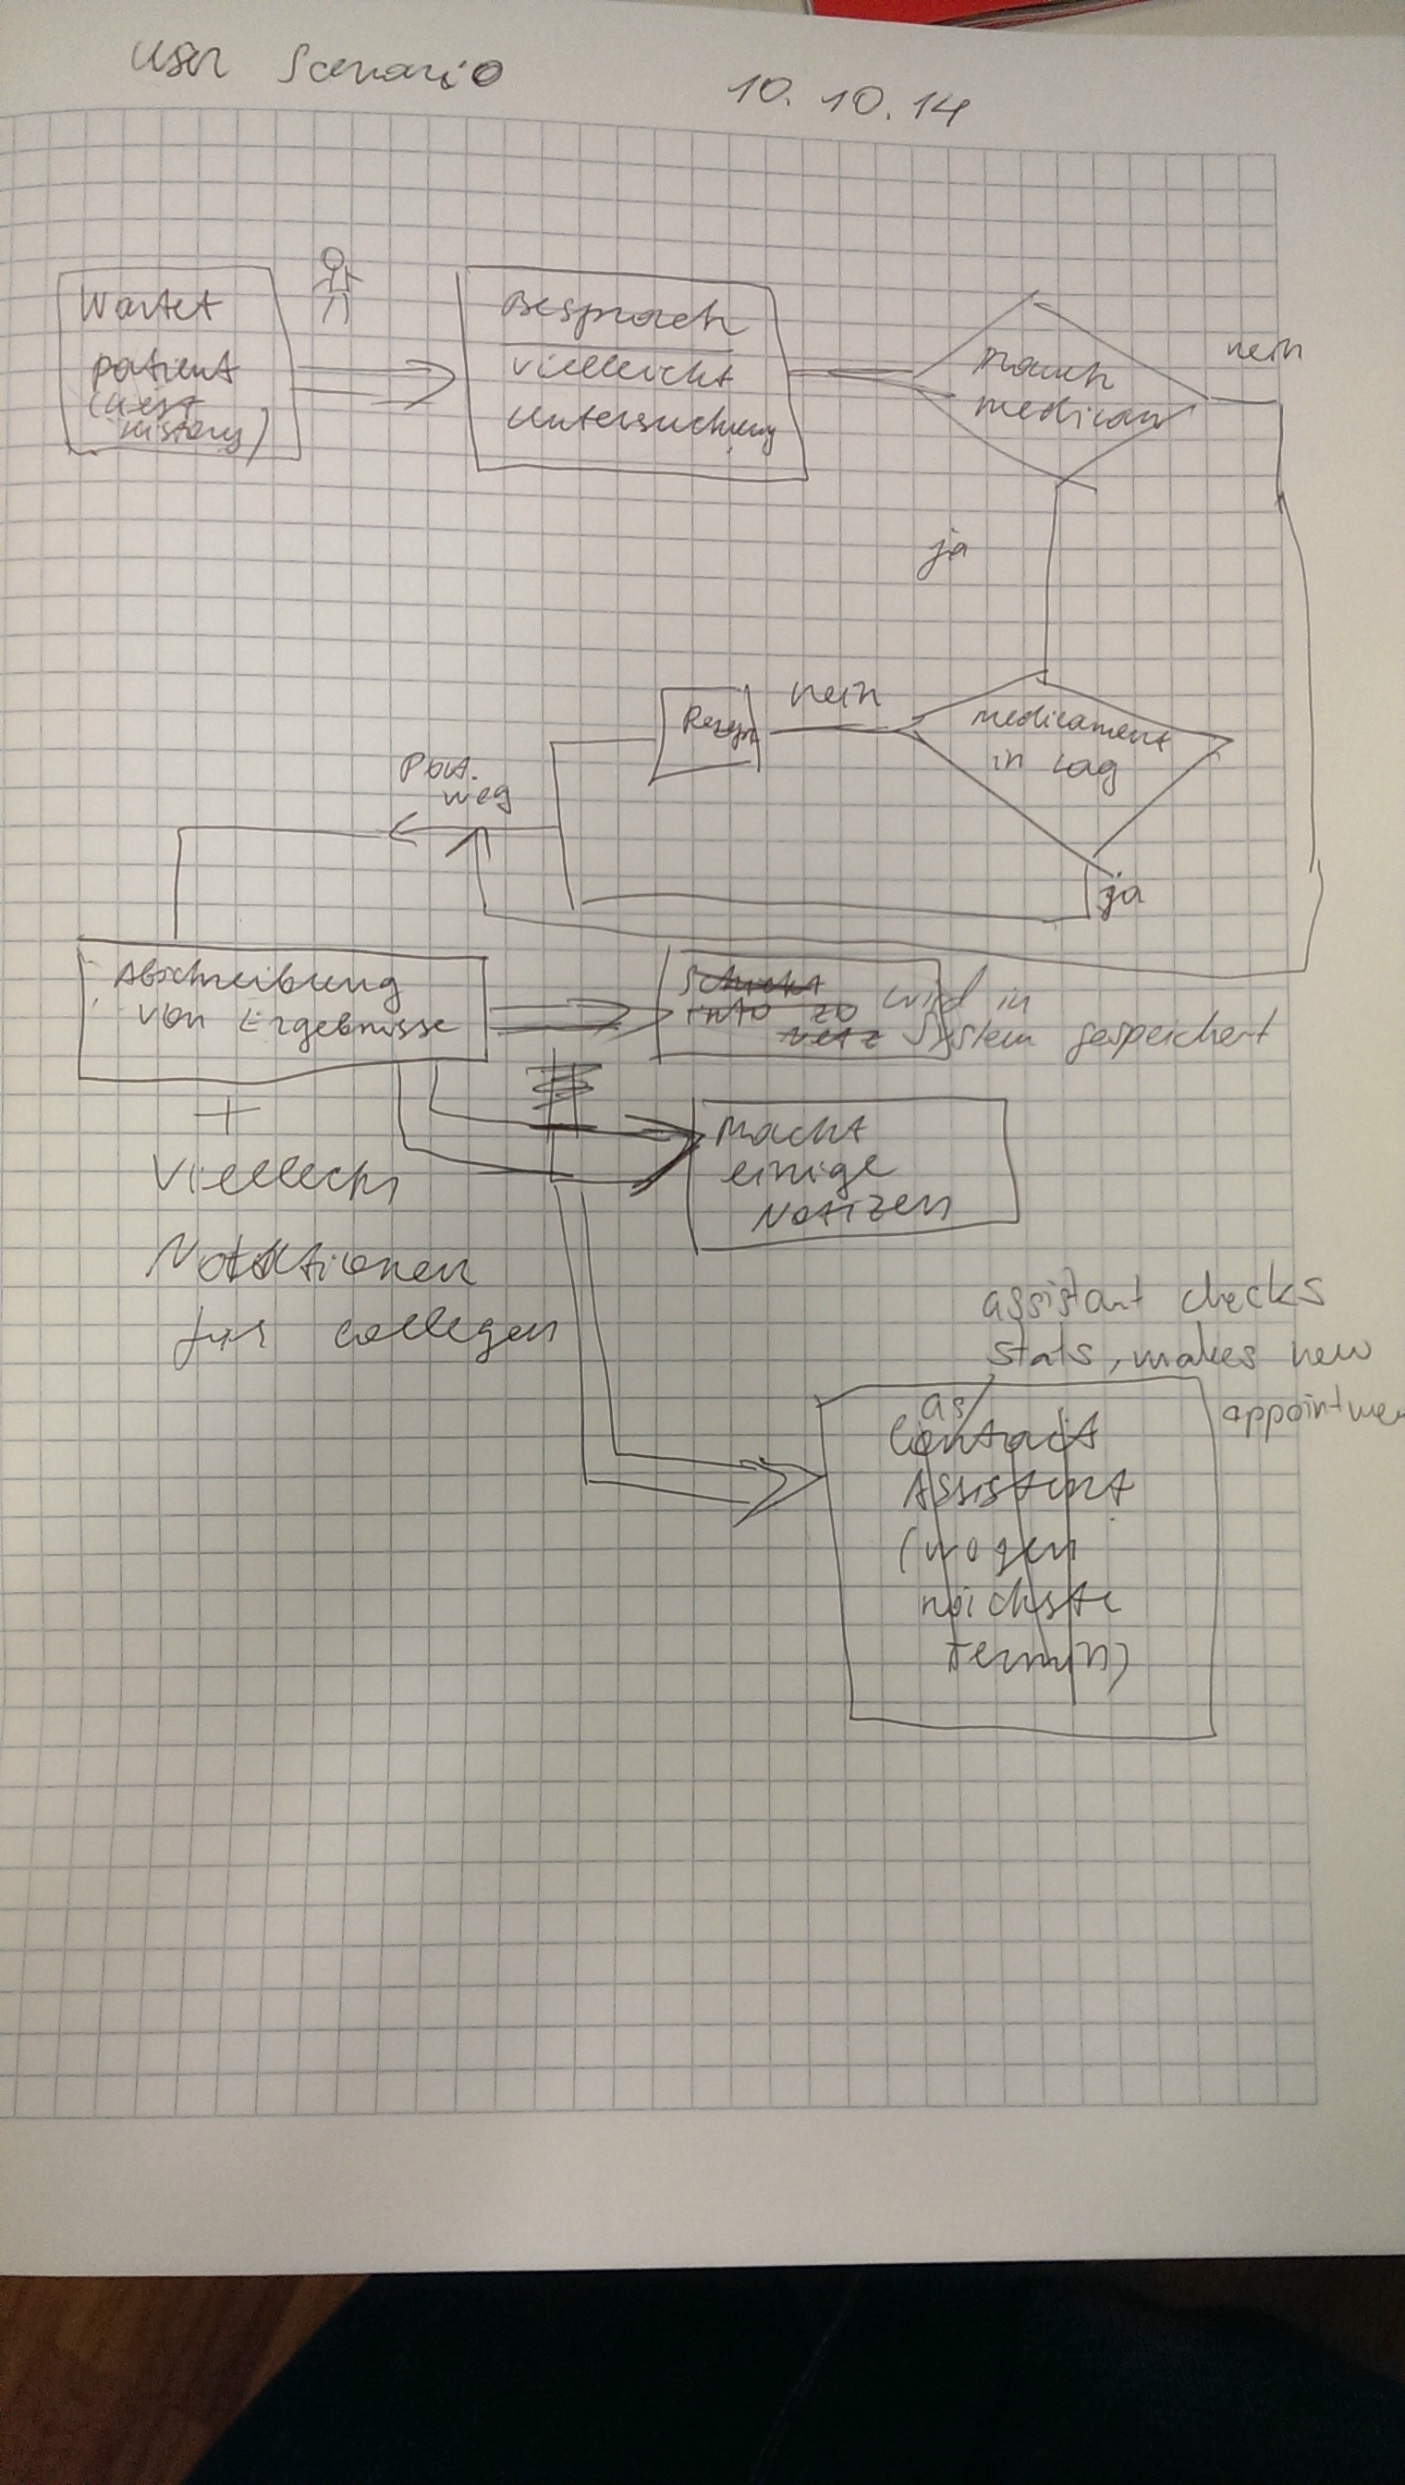 User Scenario
10. 10. 14
Wartet
patient
(liest
history)
Besprach
vielleicht
Untersuchung
nein
brauch
medican
ja
nein
Rezept
medicament
in Lag
Pat.
weg
ja
Abschreibung
von Ergebnisse
Schickt
info zo
netz
wird in
System gespeichert
+
Viellecht
Notationen
fur collegen
Macht
einige
Notizen
assistant checks
stats, makes new
appointmen
as
Contact
Assistent
(wogen
nächste
Termin)